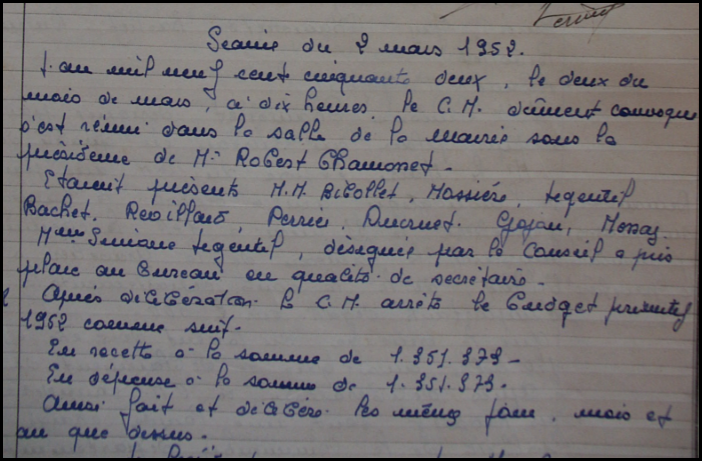 Séance du 2 mars 1952.
L'an mil neuf cent cinquante deux, le deux du
mois de mars, à dix heures, le C.M. dûment convoqué
s'est réuni dans la salle de la mairie sous la
présidence de Mr Robert Chamonet.
Etaient présents M.M. Bibollet, Massière, Legentil
Bachet, Revillard Perrier, Ducruet. Gojon,
Mme Simone Legentil, désignée par le Conseil a pris
place au bureau en qualité de secrétaire.
Après délibération le C.M. arrête le budget primitif
1952 comme suit.
En recette à la somme de 1.351.373 -
En dépense à la somme de 1.351.373.
Ainsi fait et délibéré les mêmes jour, mois et
an que dessus.